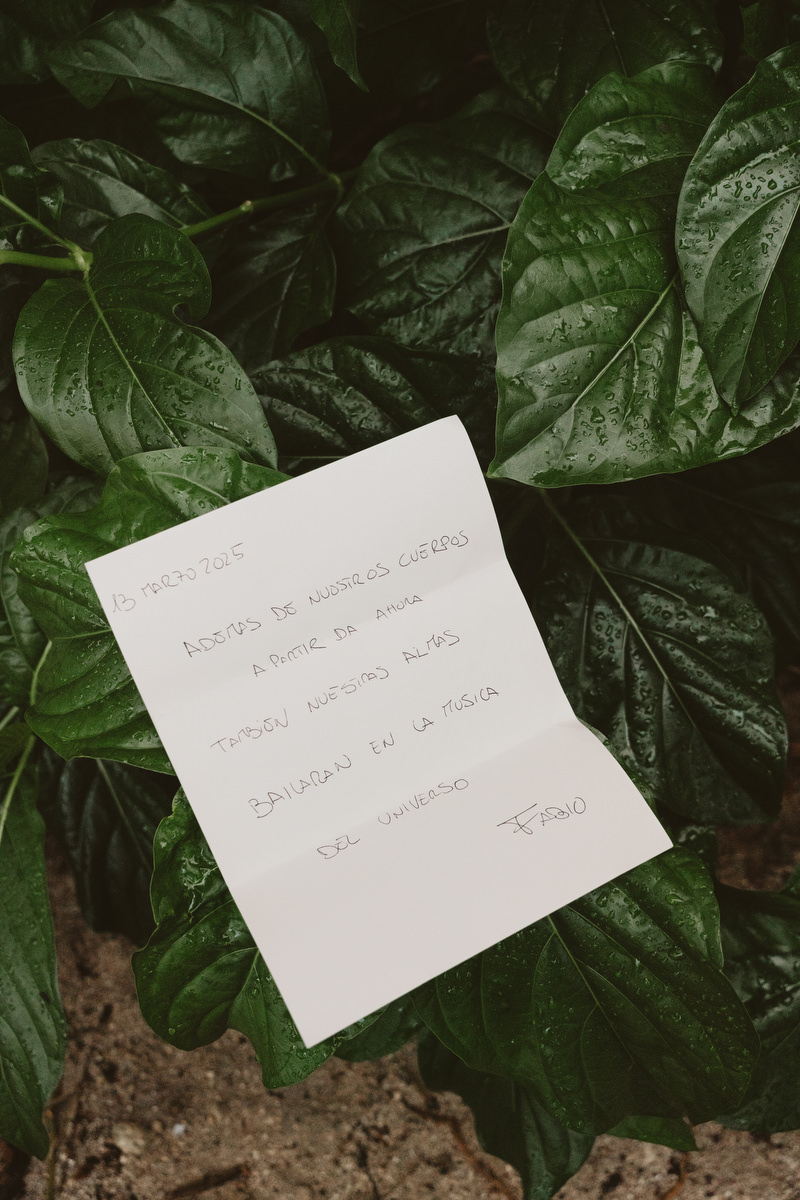 13 MARZO 2025
ADEMAS DE NUOSTROS CUERPOS
A PARTIR DA AHORA
TAMBIÉN NUESTRAS ALMAS
BAILARAN EN LA MUSICA
DEL UNIVERSO
FABIO